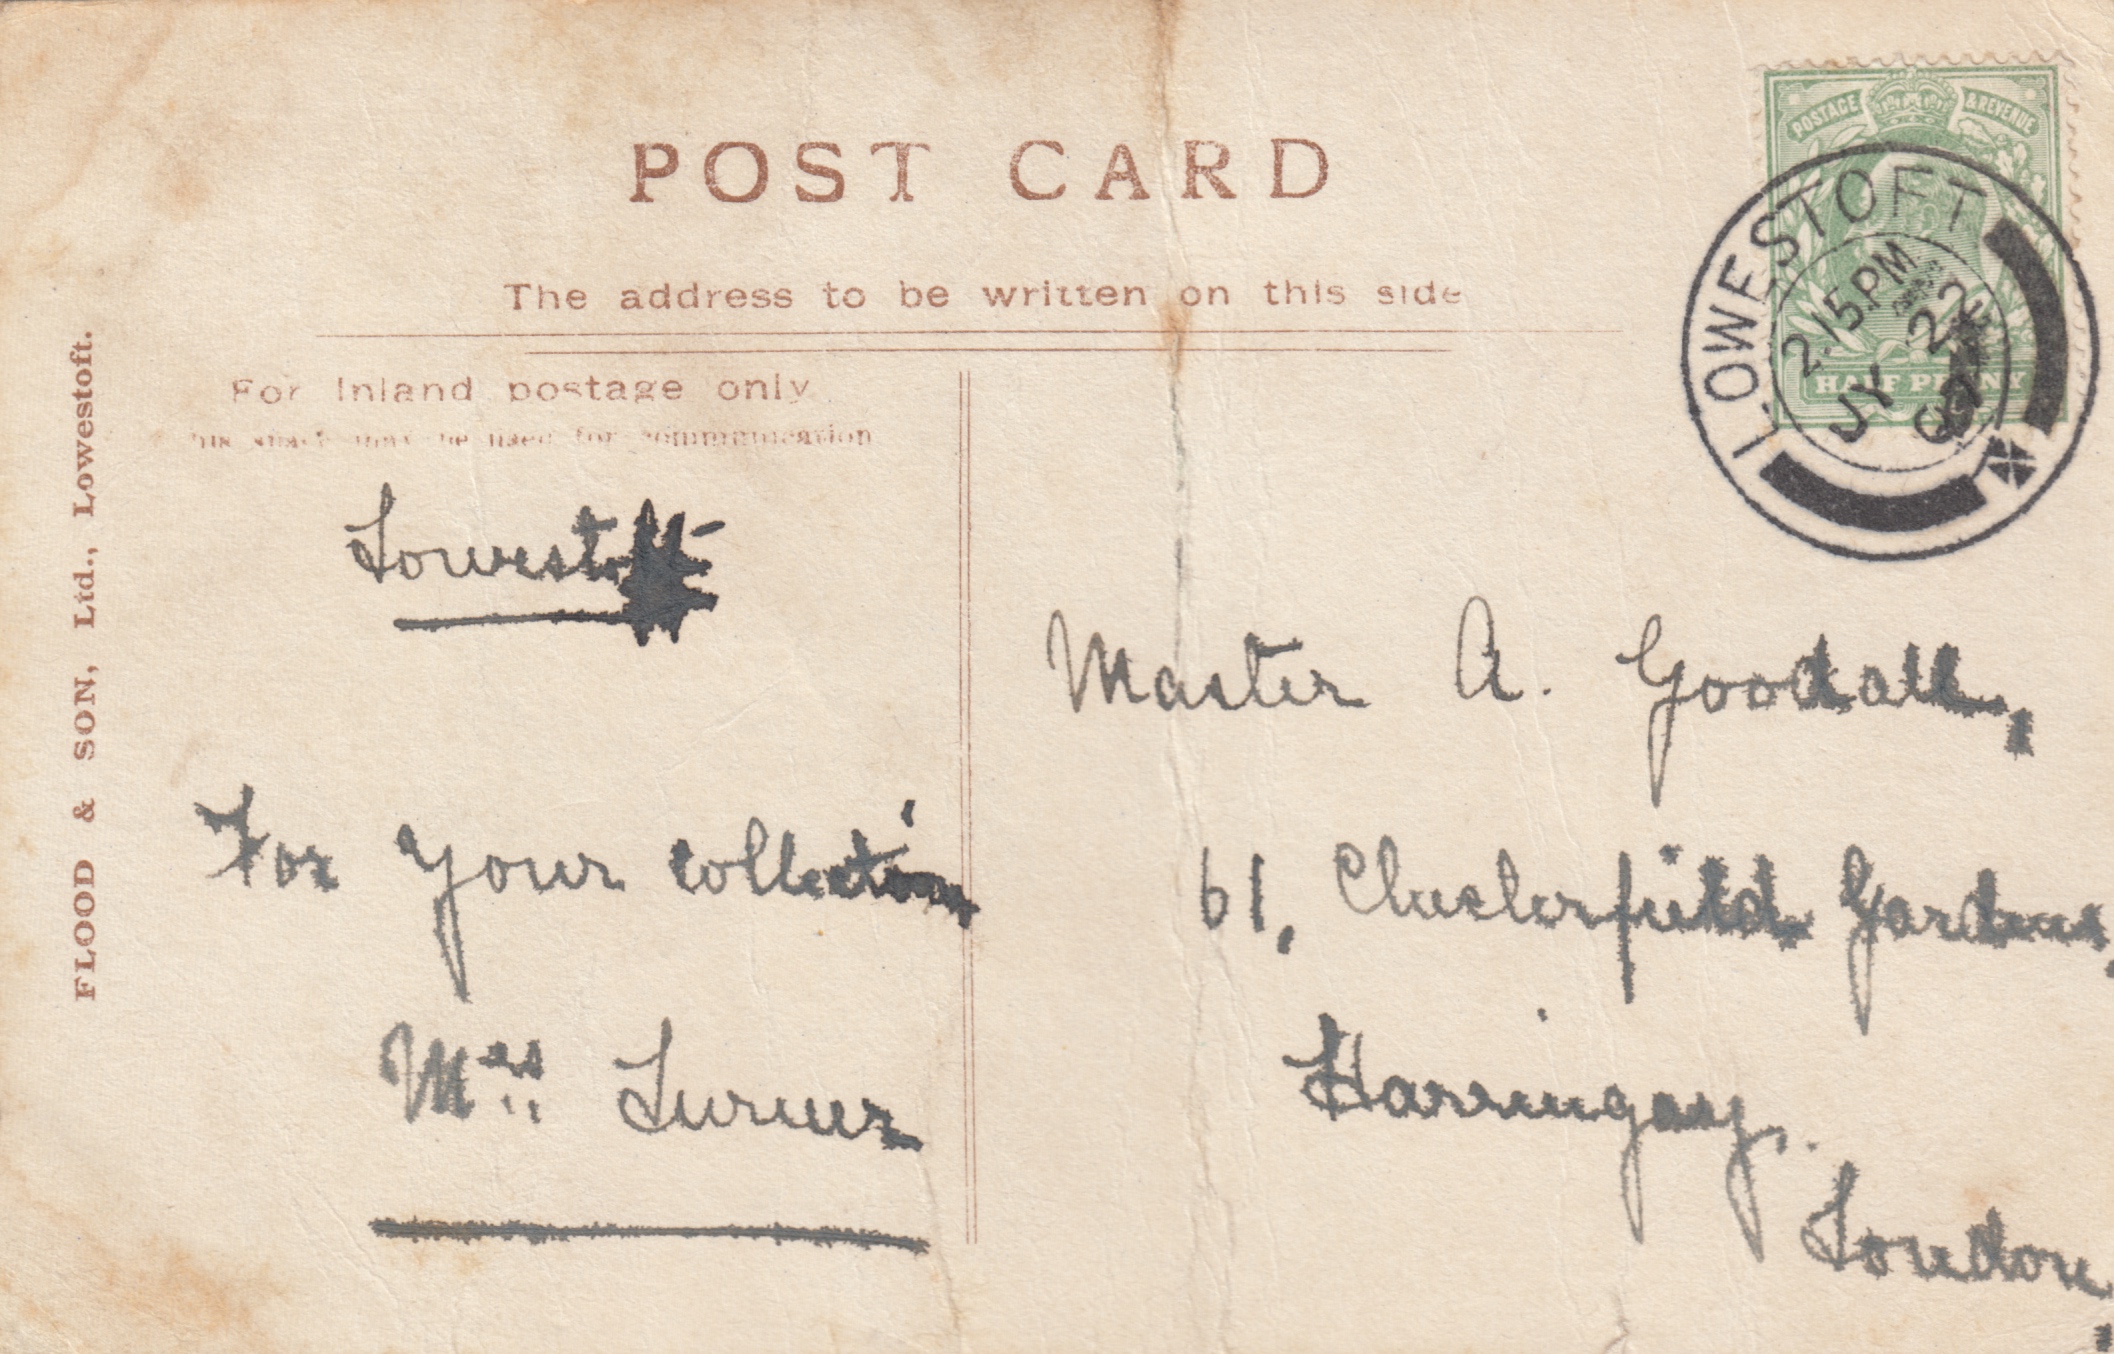 POST CARD
POSTAGE & REVENUE
LOWESTOFT
2.15PM
JY 22
HALF PENNY
The address to be written on this side
For Inland postage only
this space may be used for communication
FLOOD & SON, Ltd., Lowestoft.
Lowestoft
For your collection
Mrs Turner
Master A. Goodall,
61, Chesterfield Gardens,
Harringay,
London